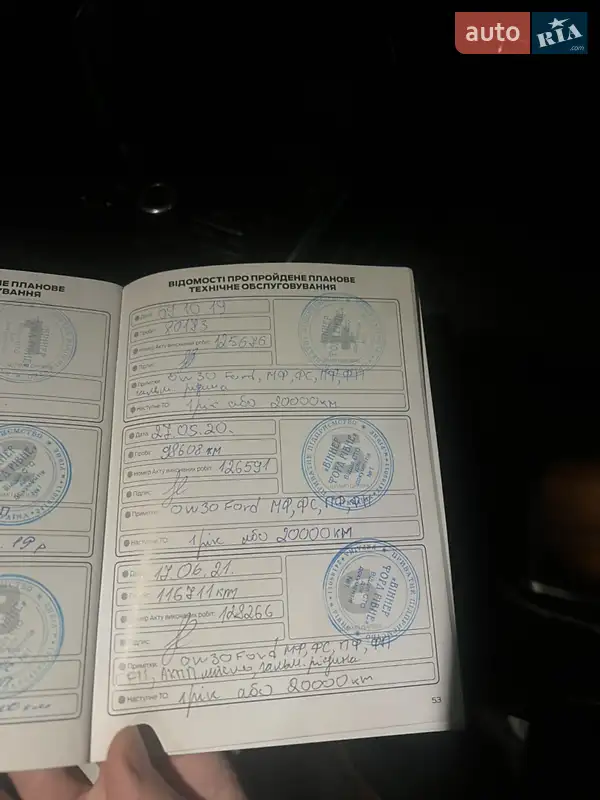 auto RIA .com
НЕ ПЛАНОВЕ
УВАННЯ
. 19 р
ВІДОМОСТІ ПРО ПРОЙДЕНЕ ПЛАНОВЕ
ТЕХНІЧНЕ ОБСЛУГОВУВАННЯ
Дата: 09 10 19
Пробіг: 80183
Номер Акту виконаних робіт: 125676
Підпис:
Примітки: 0w30 Ford, МФ, ФС, ПФ, ФП
гальм. рідина
Наступне ТО: 1 рік або 20000 км
Дата: 27.05.20.
Пробіг: 98608 км
Номер Акту виконаних робіт: 126591
Підпис:
Примітки: 0w30 Ford МФ, ФС, ПФ, ФП
Наступне ТО: 1 рік або 20000 км
ВІННЕР
ТОРА РІВНЕ
Дата: 17.06.21.
Пробіг: 116711 km
Номер Акту виконаних робіт: 128266
Підпис:
Примітки: 0w30 Ford МФ, ФС, ПФ, ФП
АКПП масло, гальм. рідина
Наступне ТО: 1 рік або 20000 км
53